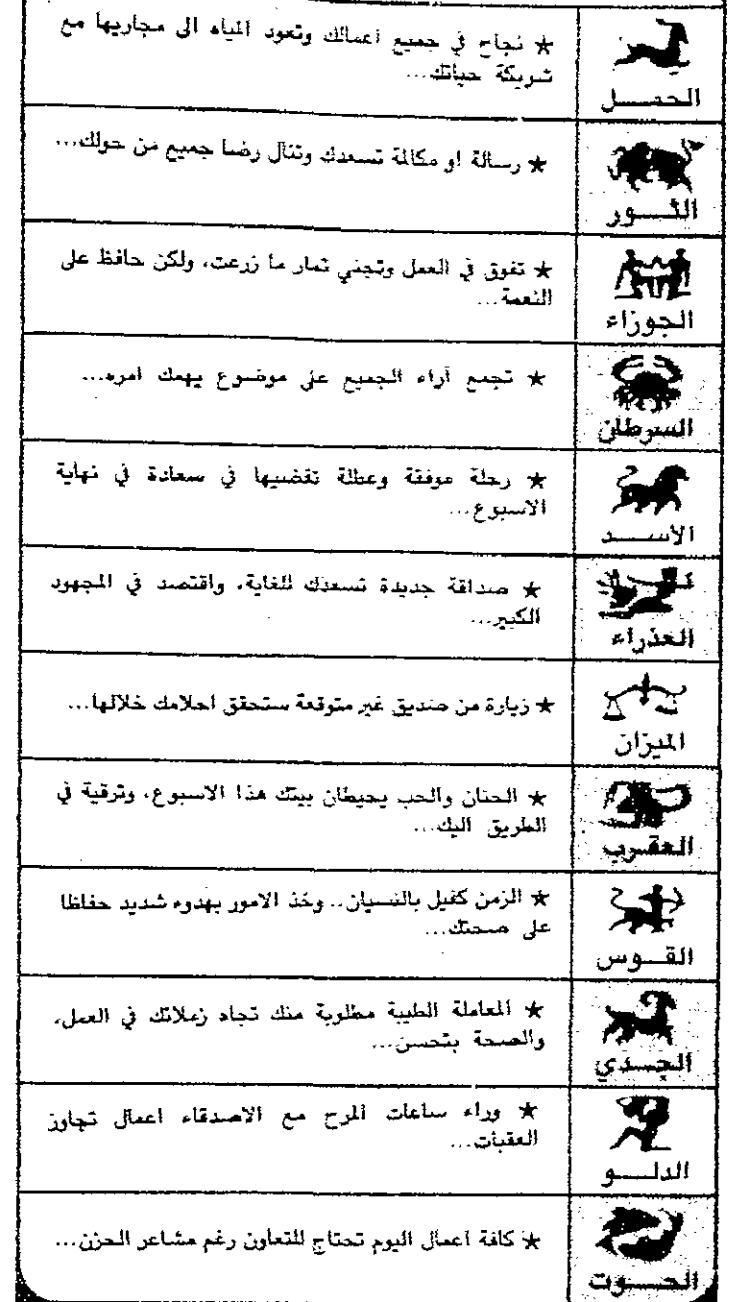 ★ نجاح في جميع اعمالك وتعود المياه الى مجاريها مع
شريكة حياتك...
الحمــل
★ رسالة او مكالمة تسعدك وتنال رضا جميع من حولك...
الثــور
★ تفوق في العمل وتجني ثمار ما زرعت، ولكن حافظ على
النعمة...
الجوزاء
★ تجمع آراء الجميع على موضوع يهمك امره...
السرطان
★ رحلة موفقة وعطلة تقضيها في سعادة في نهاية
الاسبوع...
الأســد
★ صداقة جديدة تسعدك للغاية، واقتصد في المجهود
الكبير...
العذراء
★ زيارة من صديق غير متوقعة ستحقق احلامك خلالها...
الميزان
★ الحنان والحب يحيطان بيتك هذا الاسبوع، وترقية في
الطريق اليك...
العقرب
★ الزمن كفيل بالنسيان.. وخذ الامور بهدوء شديد حفاظا
على صحتك...
القــوس
★ المعاملة الطيبة مطلوبة منك تجاه زملائك في العمل،
والصحة بتحسن...
الجــدي
★ وراء ساعات المرح مع الاصدقاء اعمال تجاوز
العقبات...
الدلــو
★ كافة اعمال اليوم تحتاج للتعاون رغم مشاعر الحزن...
الحــوت